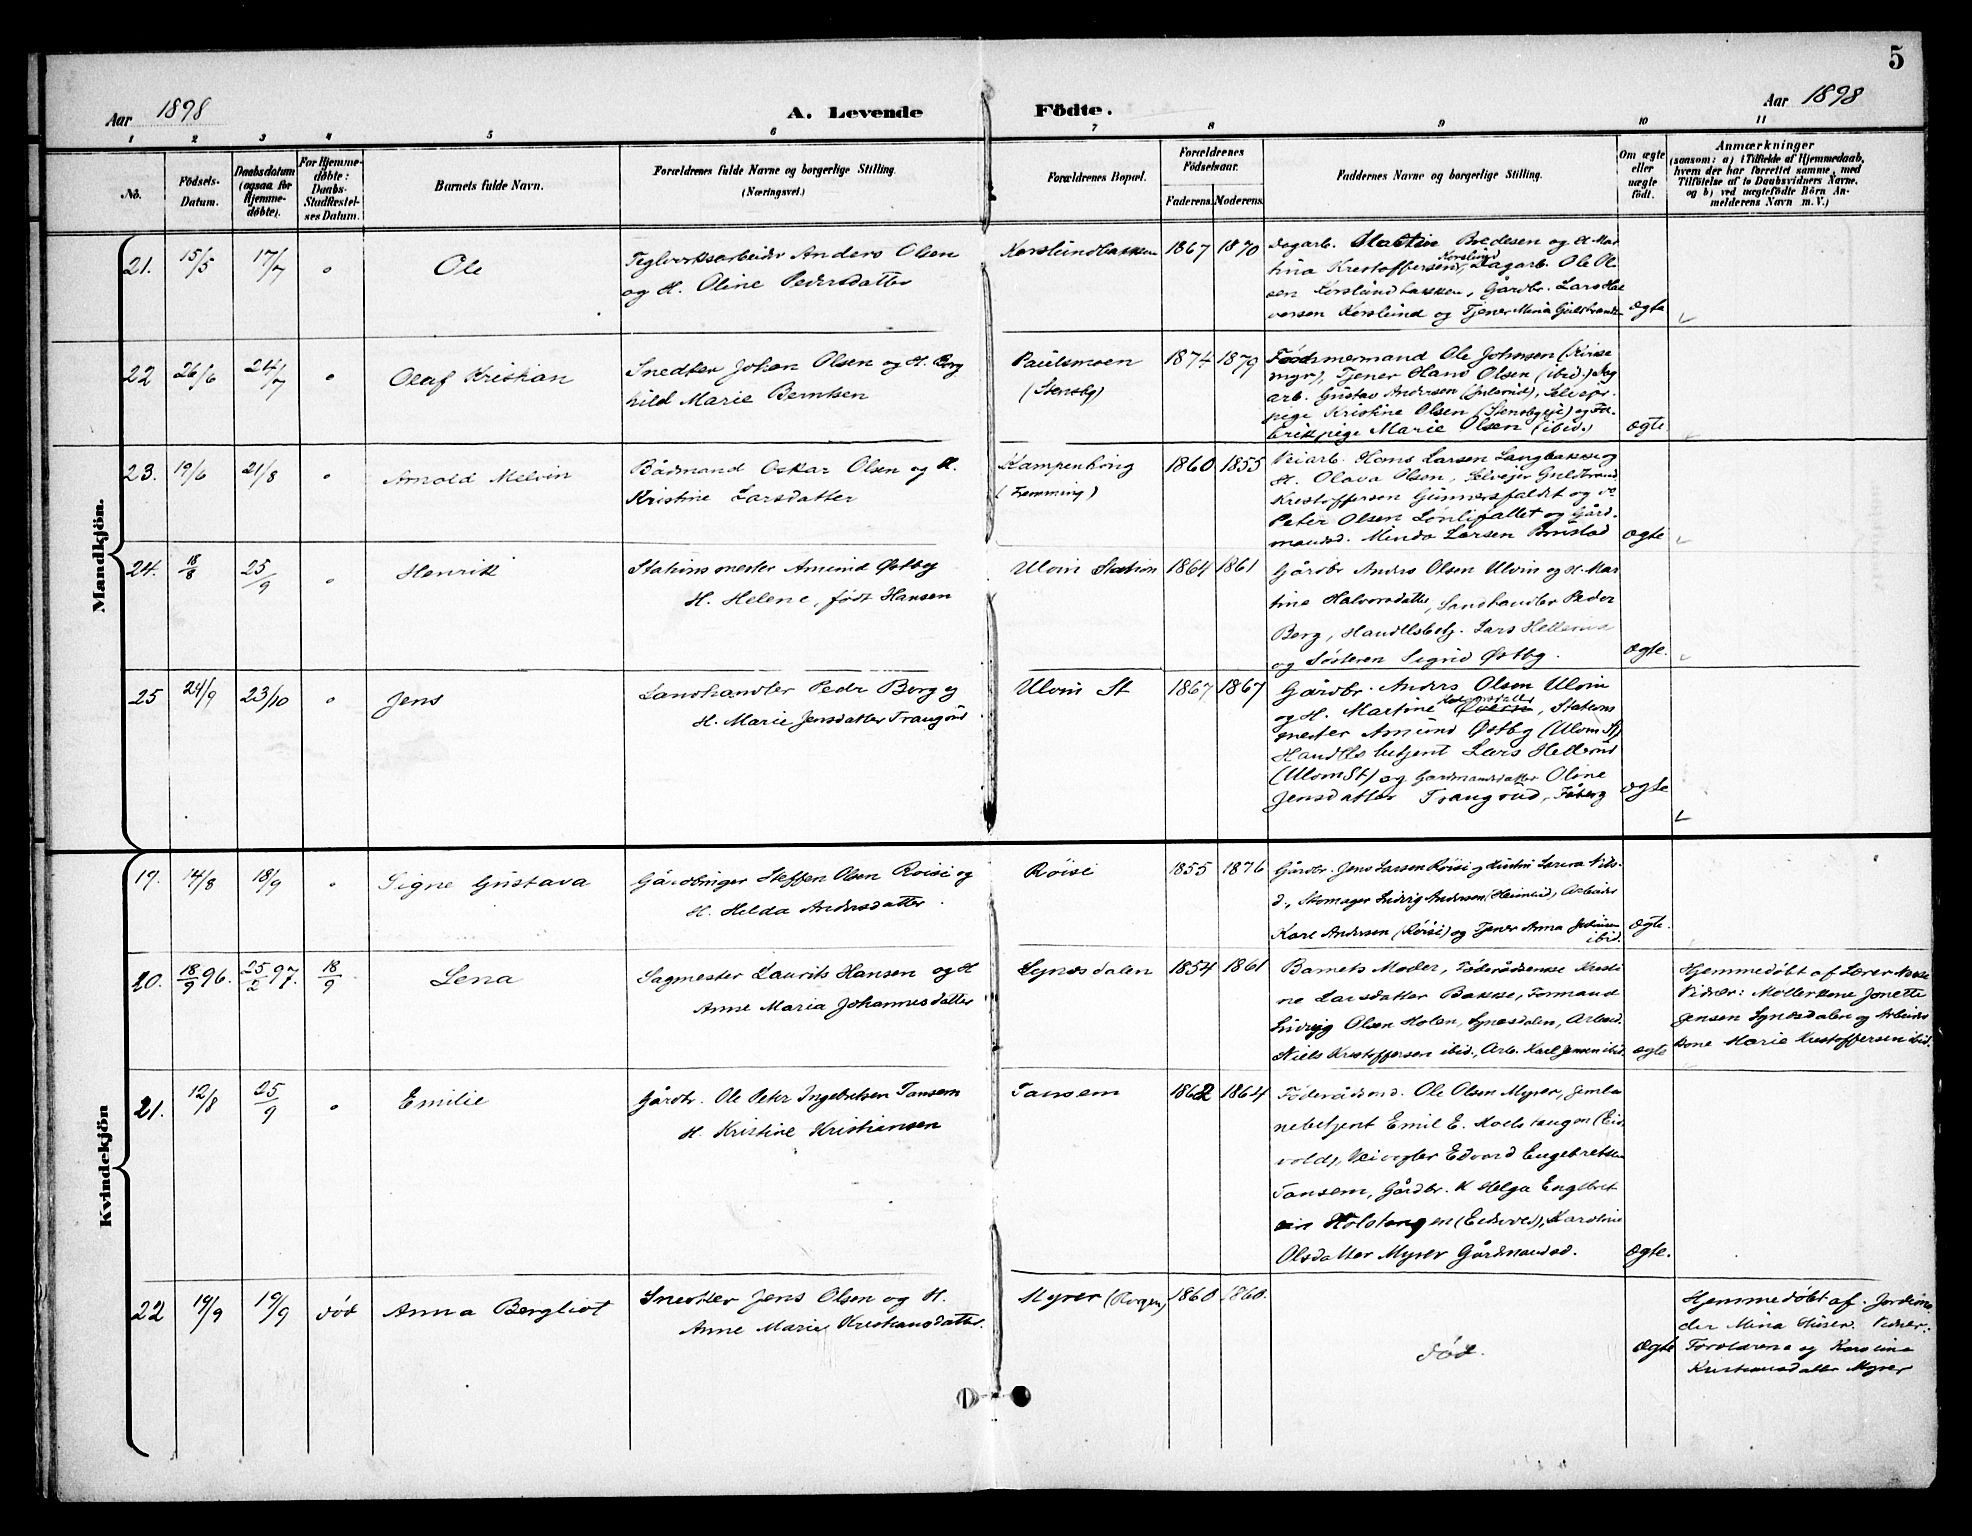 5
Aar 1898
A. Levende Födte.
Aar 1898
1 2 3 4 5 6 7 8 9 10 11
No.
Födsels-
Datum.
Daabsdatum
(ogsaa for
Hjemme-
döbte).
For Hjemme-
döbte:
Daabs-
Stadfæstel-
ses Datum.
Barnets fulde Navn.
Forældrenes fulde Navne og borgerlige Stilling.
(Næringsvei.)
Forældrenes Bopæl.
Forældrenes
Fødselsaar.
Faderens. Moderens.
Faddernes Navne og borgerlige Stilling.
Om ægte
eller
uægte
födt.
Anmærkninger
(saasom: a) i Tilfælde af Hjemmedaab,
hvem der har forrettet samme, med
Tilföielse af to Daabsvidners Navne,
og b) ved uægtefödte Börn An-
melderens Navn m. V.)
Mandkjön.
21. 15/5 17/7 " Ole
Teglverksarbeider Anders Olsen
og H. Oline Pedersdatter
Korslundbakken 1867 1870
Dagarb. Martin Bredesen og H. Mar
tina Kristoffersen Korslund, Dagarb. Ole Ol
sen Korslundbakken, Gårdbr. Lars Hal
vorsen Korslund og Tjener Mina Guldbrands
ægte
22 26/6 24/7 " Olaf Kristian
Snedker Johan Olsen og H. Borg
hild Marie Berntsen
Paulsmoen
(Stensby)
1874 1879
Tømmermand Ole Johnsen (Kirke
myr), Tjener Hans Olsen (ibid.) Dag
arb. Gustav Andersen (Julerud), Selveier
pige Kristine Olsen (Stensbyeie) og Fa
brikpige Marie Olsen (ibid.)
ægte.
23. 19/6 21/8 " Arnold Melvin
Bådmand Oskar Olsen og H.
Kristine Larsdatter
Kampenhoug
(Femming)
1860 1855
Veiarb. Hans Larsen Langbakke og
H. Olava Olsen, Selveier Guldbrand
Kristoffersen Gunnersfaldet og
Peter Olsen Lønlifallet og Gård
mandsd. Minda Larsen Brustad
ægte
24. 18/8 25/9 " Henrik
Stationsmester Amund Østby
H. Helene, født Hansen
Ulvin Station 1864 1861
Gårdbr Anders Olsen Ulvin og H. Mar
tine Halvorsdatter, Landhandler Peder
Berg, Handelsbetj. Lars Hellerud
og Søsteren Sigrid Østby.
ægte.
25 24/9 23/10 " Jens
Landhandler Peder Berg og
H. Marie Jensdatter Traugrud
Ulvin St 1867 1867
Gårdbr. Anders Olsen Ulvin
og H. Martine Halvorsdatter, Stations
mester Amund Østby (Ulvin St)
Handelsbetjent Lars Hellerud
(Ulvin St) og Gardmandsdatter Oline
Jensdatter Traugrud, Fåberg
ægte
Kvindekjön
19. 14/8 18/9 " Signe Gustava
Gårdbruger Steffen Olsen Røisi og
H. Helda Andersdatter.
Røisi 1855 1876
Gårdbr. Jens Larsen Røisi og Hustru Laura Nils-
d., Skomager Ludvig Andersen (Heimlid), Arbeider
Karl Andersen (Røisi) og Tjener Anna
ibid.
ægte.
20. 18/9 96. 25/2 97. 18/9 Lena
Sagmester Laurits Hansen og H
Anne Maria Johannesdatter
Synesdalen 1854 1861
Barnets Moder, Føderådsenke Kristi
ne Larsdatter Bakke, Formand
Ludvig Olsen Holen, Synesdalen, Arbeid.
Niels Kristoffersen ibid., Arb. Karl Jensen ibid.
ægte
Hjemmedøbt af Lærer
Vidner: Møllerkone Jonette
Jensen Synesdalen og Arbeider
kone Marie Kristoffersen ibid.
21. 12/8 25/9 " Emilie
Gårdbr. Ole Peter Ingebretsen Tansem
H. Kristine Kristiansen
Tansem 1862 1864
Føderådsmd. Ole Olsen Myrer, Jernba
nebetjent Emil E. Holstangen (Eid
vold), Veivogter Edvard Engebretsen
Tansem, Gårdbr. K Helga Engebret
sen Holstangen (Eidsvold), Karoline
Olsdatter Myrer Gårdmandsd.
ægte.
22 14/9 19/9 død Anna Bergliot
Snedker Jens Olsen og H.
Anne Marie Kristiansdatter.
Myrer (Rorgen) 1860 1860.
død.
ægte
Hjemmedøbt af Jordemo
der Mina Huser. Vidner:
Forældrene og Karoline
Kristiansdatter Myrer